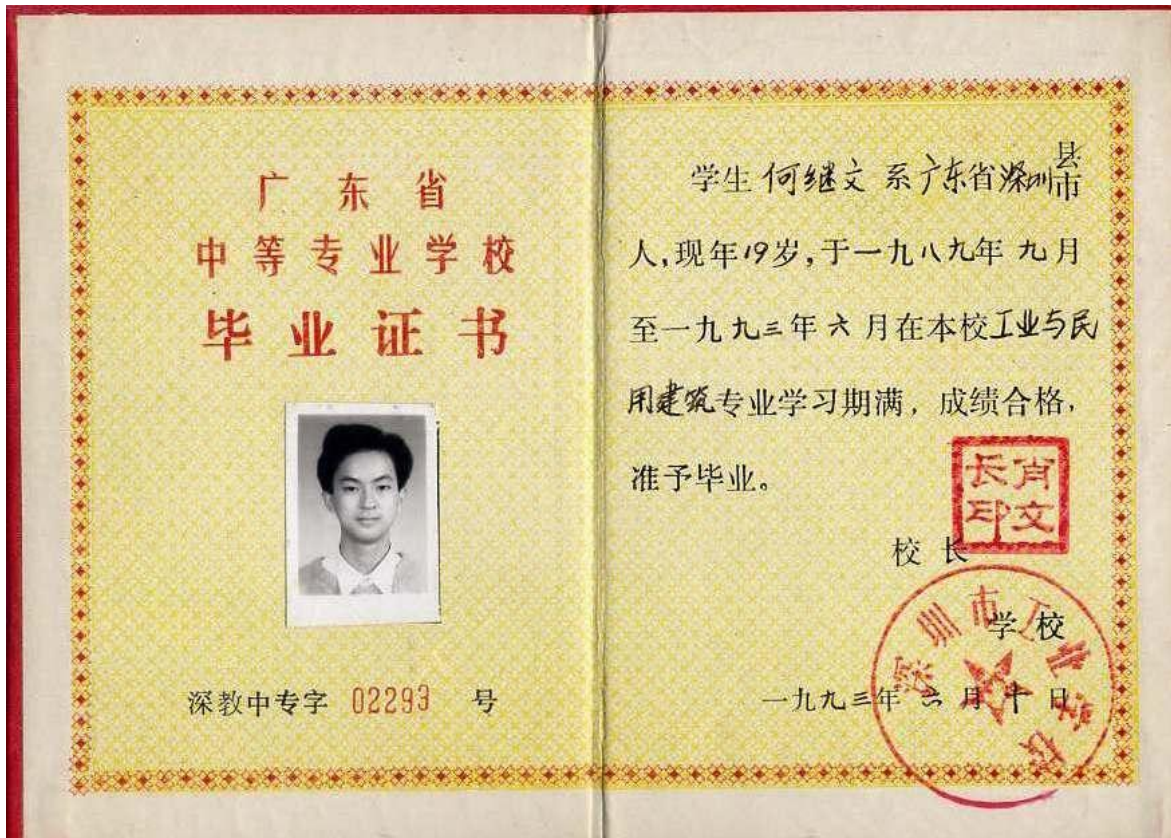 广东省
中等专业学校
毕业证书
深教中专字 02293 号
学生 何继文 系广东省深圳县市
人,现年19岁,于一九八九年 九月
至一九九三年 六月在本校工业与民
用建筑专业学习期满，成绩合格，
准予毕业。
肖文
长印
校长
学校
深圳市工业学校
一九九三年 六月 十日